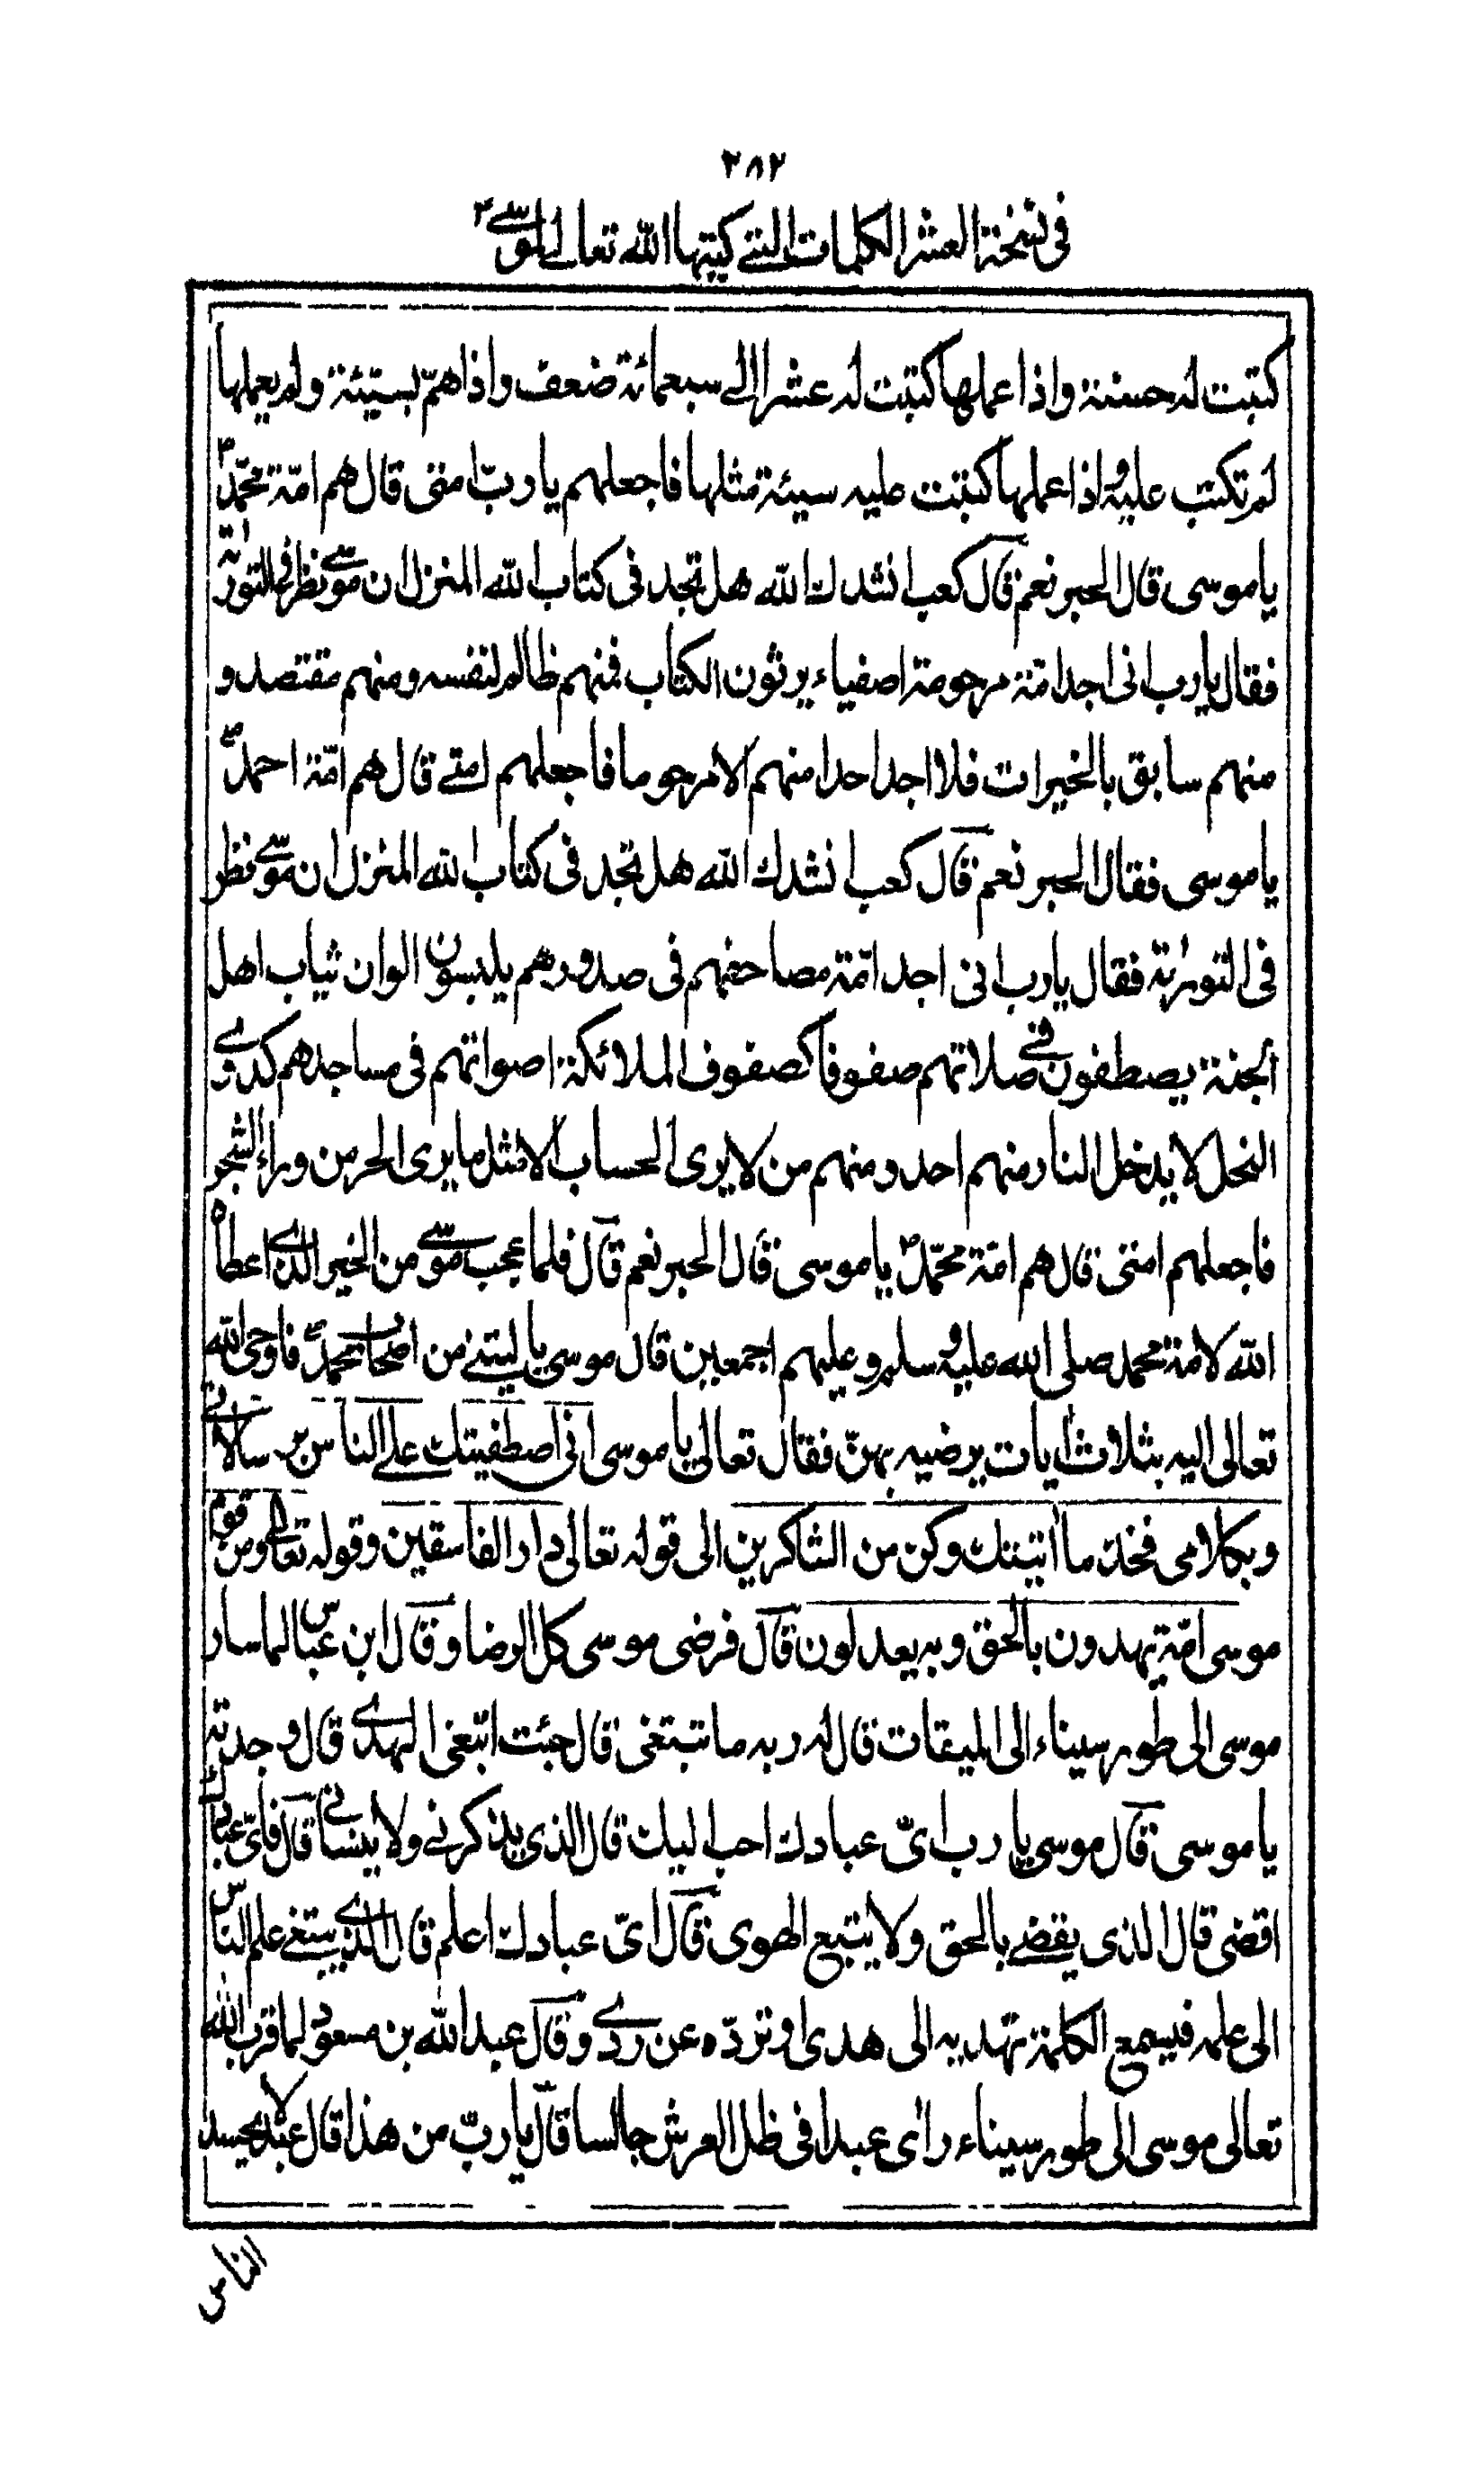 ٢٨٢
في نسخة العشر الكلمات التى كتبها الله تعالى لموسى ٢
كتبت له حسنة واذا عملها كتبت له عشرا الى سبعمائة ضعف واذا همّ بسيّئة ولم يعملها
لم تكتب عليه واذا عملها كتبت عليه سيئة مثلها فاجعلهم يا ربّ امتى قال هم امّة محمّد ؐ
يا موسى قال الحبر نعم قال كعب انشدك الله هل تجد فى كتاب الله المنزل ان موسى نظر فى التورٰية
فقال يا رب انى اجد امّة مرحومة اصفياء يرثون الكتاب فمنهم ظالم لنفسه ومنهم مقتصد و
منهم سابق بالخيرات فلا اجد احدا منهم الا مرحوما فاجعلهم امتى قال هم امّة احمد ؐ
يا موسى فقال الحبر نعم قال كعب انشدك الله هل تجد فى كتاب الله المنزل ان موسى نظر
فى التورٰية فقال يا رب انى اجد امّة مصاحفهم فى صدورهم يلبسون الوان ثياب اهل
الجنة يصطفون فى صلاتهم صفوفا كصفوف الملائكة اصواتهم فى مساجدهم كدوى
النحل لا يدخل النار منهم احد ومنهم من لا يرى الحساب الا مثل ما يرى الحر من وراء الشجر
فاجعلهم امتى قال هم امّة محمّد ؐ يا موسى قال الحبر نعم قال فلما عجب موسى من الخير الذى اعطاه
الله لامة محمد صلى الله عليه وسلم وعليهم اجمعين قال موسى يا ليتنى من اصحاب محمد ؐ فاوحى الله
تعالى اليه بثلاث اٰيات يرضيه بهنّ فقال تعالى يا موسى انى اصطفيتك على الناس برسالاتى
وبكلامى فخذ ما اٰتيتك وكن من الشاكرين الى قوله تعالى دار الفاسقين وقوله تعالى ومن قوم
موسى امّة يهدون بالحق وبه يعدلون قال فرضى موسى كل الرضا وقال ابن عباس لما سار
موسى الى طور سيناء الى الميقات قال له ربه ما تبتغى قال جئت ابتغى الهدى قال وجدته
يا موسى قال موسى يا رب اىّ عبادك احب اليك قال الذى يذكرنى ولا ينسانى قال فاىّ عبادك
اقضى قال الذى يقضى بالحق ولا يتبع الهوى قال اىّ عبادك اعلم قال الذى يبتغى علم الناس
الى علمه فيسمع الكلمة تهديه الى هدى او تردّه عن ردى وقال عبد الله بن مسعود لما قرب الله
تعالى موسى الى طور سيناء راى عبدا فى ظل العرش جالسا قال يا ربّ من هذا قال عبد لا يحسد
الناس